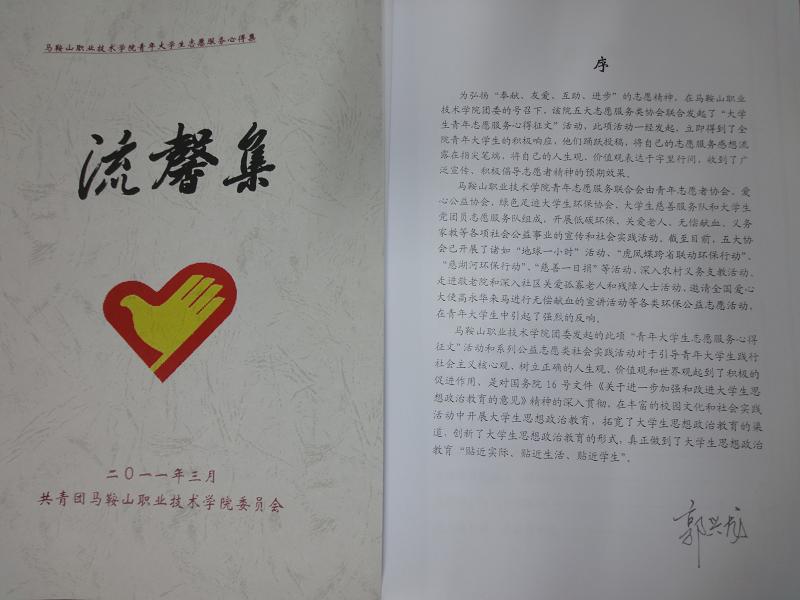 马鞍山职业技术学院青年大学生志愿服务心得集
流馨集
二〇一一年三月
共青团马鞍山职业技术学院委员会
序
为弘扬“奉献、友爱、互助、进步”的志愿精神，在马鞍山职业
技术学院团委的号召下，该院五大志愿服务类协会联合发起了“大学
生青年志愿服务心得征文”活动，此项活动一经发起，立即得到了全
院青年大学生的积极响应，他们踊跃投稿，将自己的志愿服务感想流
露在指尖笔端，将自己的人生观、价值观表达于字里行间，收到了广
泛宣传、积极倡导志愿者精神的预期效果。
马鞍山职业技术学院青年志愿服务联合会由青年志愿者协会、爱
心公益协会，绿色足迹大学生环保协会、大学生慈善服务队和大学生
党团员志愿服务队组成，开展低碳环保、关爱老人、无偿献血、义务
家教等各项社会公益事业的宣传和社会实践活动。截至目前，五大协
会已开展了诸如“地球一小时”活动、“虎凤蝶跨省联动环保行动”、
“慈湖河环保行动”、“慈善一日捐”等活动，深入农村义务支教活动、
走进敬老院和深入社区关爱孤寡老人和残障人士活动、邀请全国爱心
大使高永华来马进行无偿献血的宣讲活动等各类环保公益志愿活动，
在青年大学生中引起了强烈的反响。
马鞍山职业技术学院团委发起的此项“青年大学生志愿服务心得
征文”活动和系列公益志愿类社会实践活动对于引导青年大学生践行
社会主义核心观、树立正确的人生观、价值观和世界观起到了积极的
促进作用，是对国务院 16 号文件《关于进一步加强和改进大学生思
想政治教育的意见》精神的深入贯彻，在丰富的校园文化和社会实践
活动中开展大学生思想政治教育，拓宽了大学生思想政治教育的渠
道，创新了大学生思想政治教育的形式，真正做到了大学生思想政治
教育“贴近实际、贴近生活、贴近学生”。
郭兴